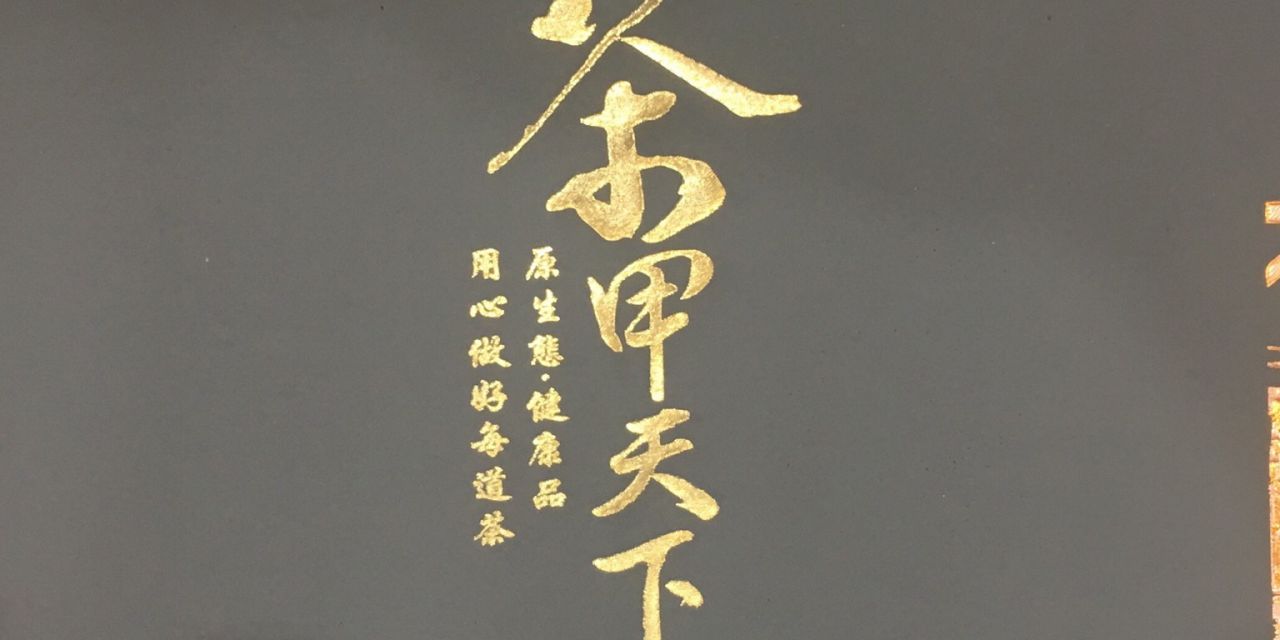 茶甲天下
原生態·健康品
用心做好每道茶